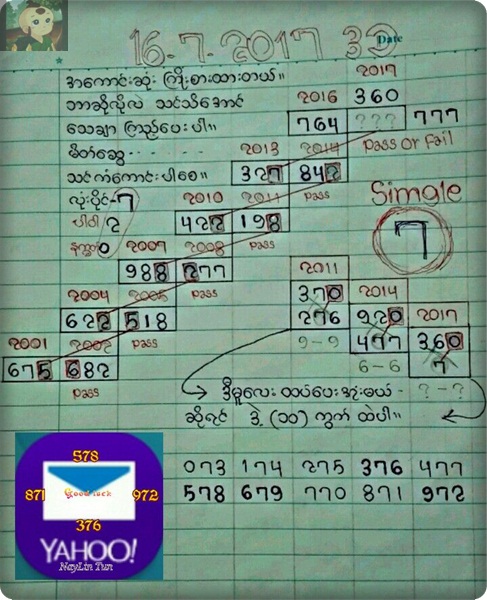 16-7-2017 32
Date
အကောင်းဆုံး ကြိုးစားထားတယ်။ 2017
ဘာဆိုလိုလဲ သင်သိအောင် 2016 360
သေချာ ကြည့်ပေးပါ။ 764 ??? 777
မိတ်ဆွေ - - - - - 2013 2014 Pass or Fail
သင်ကံကောင်းပါစေ။ 327 842
လုံးပိုင်-7 2010 2011 Pass Simgle
ပါဝါ 2 422 198 7
နက္ခတ် 0 2007 2008 Pass
988 277 2011
2004 2005 Pass 370 2014
622 518 276 920 2017
2001 2002 Pass 9-9 477 360
675 682 6-6 7
Pass
ဒီမူလေး ထပ်ပေးအုံးမယ် - ?-?
ဆိုရင် ဒဲ့ (၁၀) ကွက် ထဲပါ။
073 174 275 376 477
578 679 770 871 972
578
871 Good luck 972
376
YAHOO!
NayLin Tun